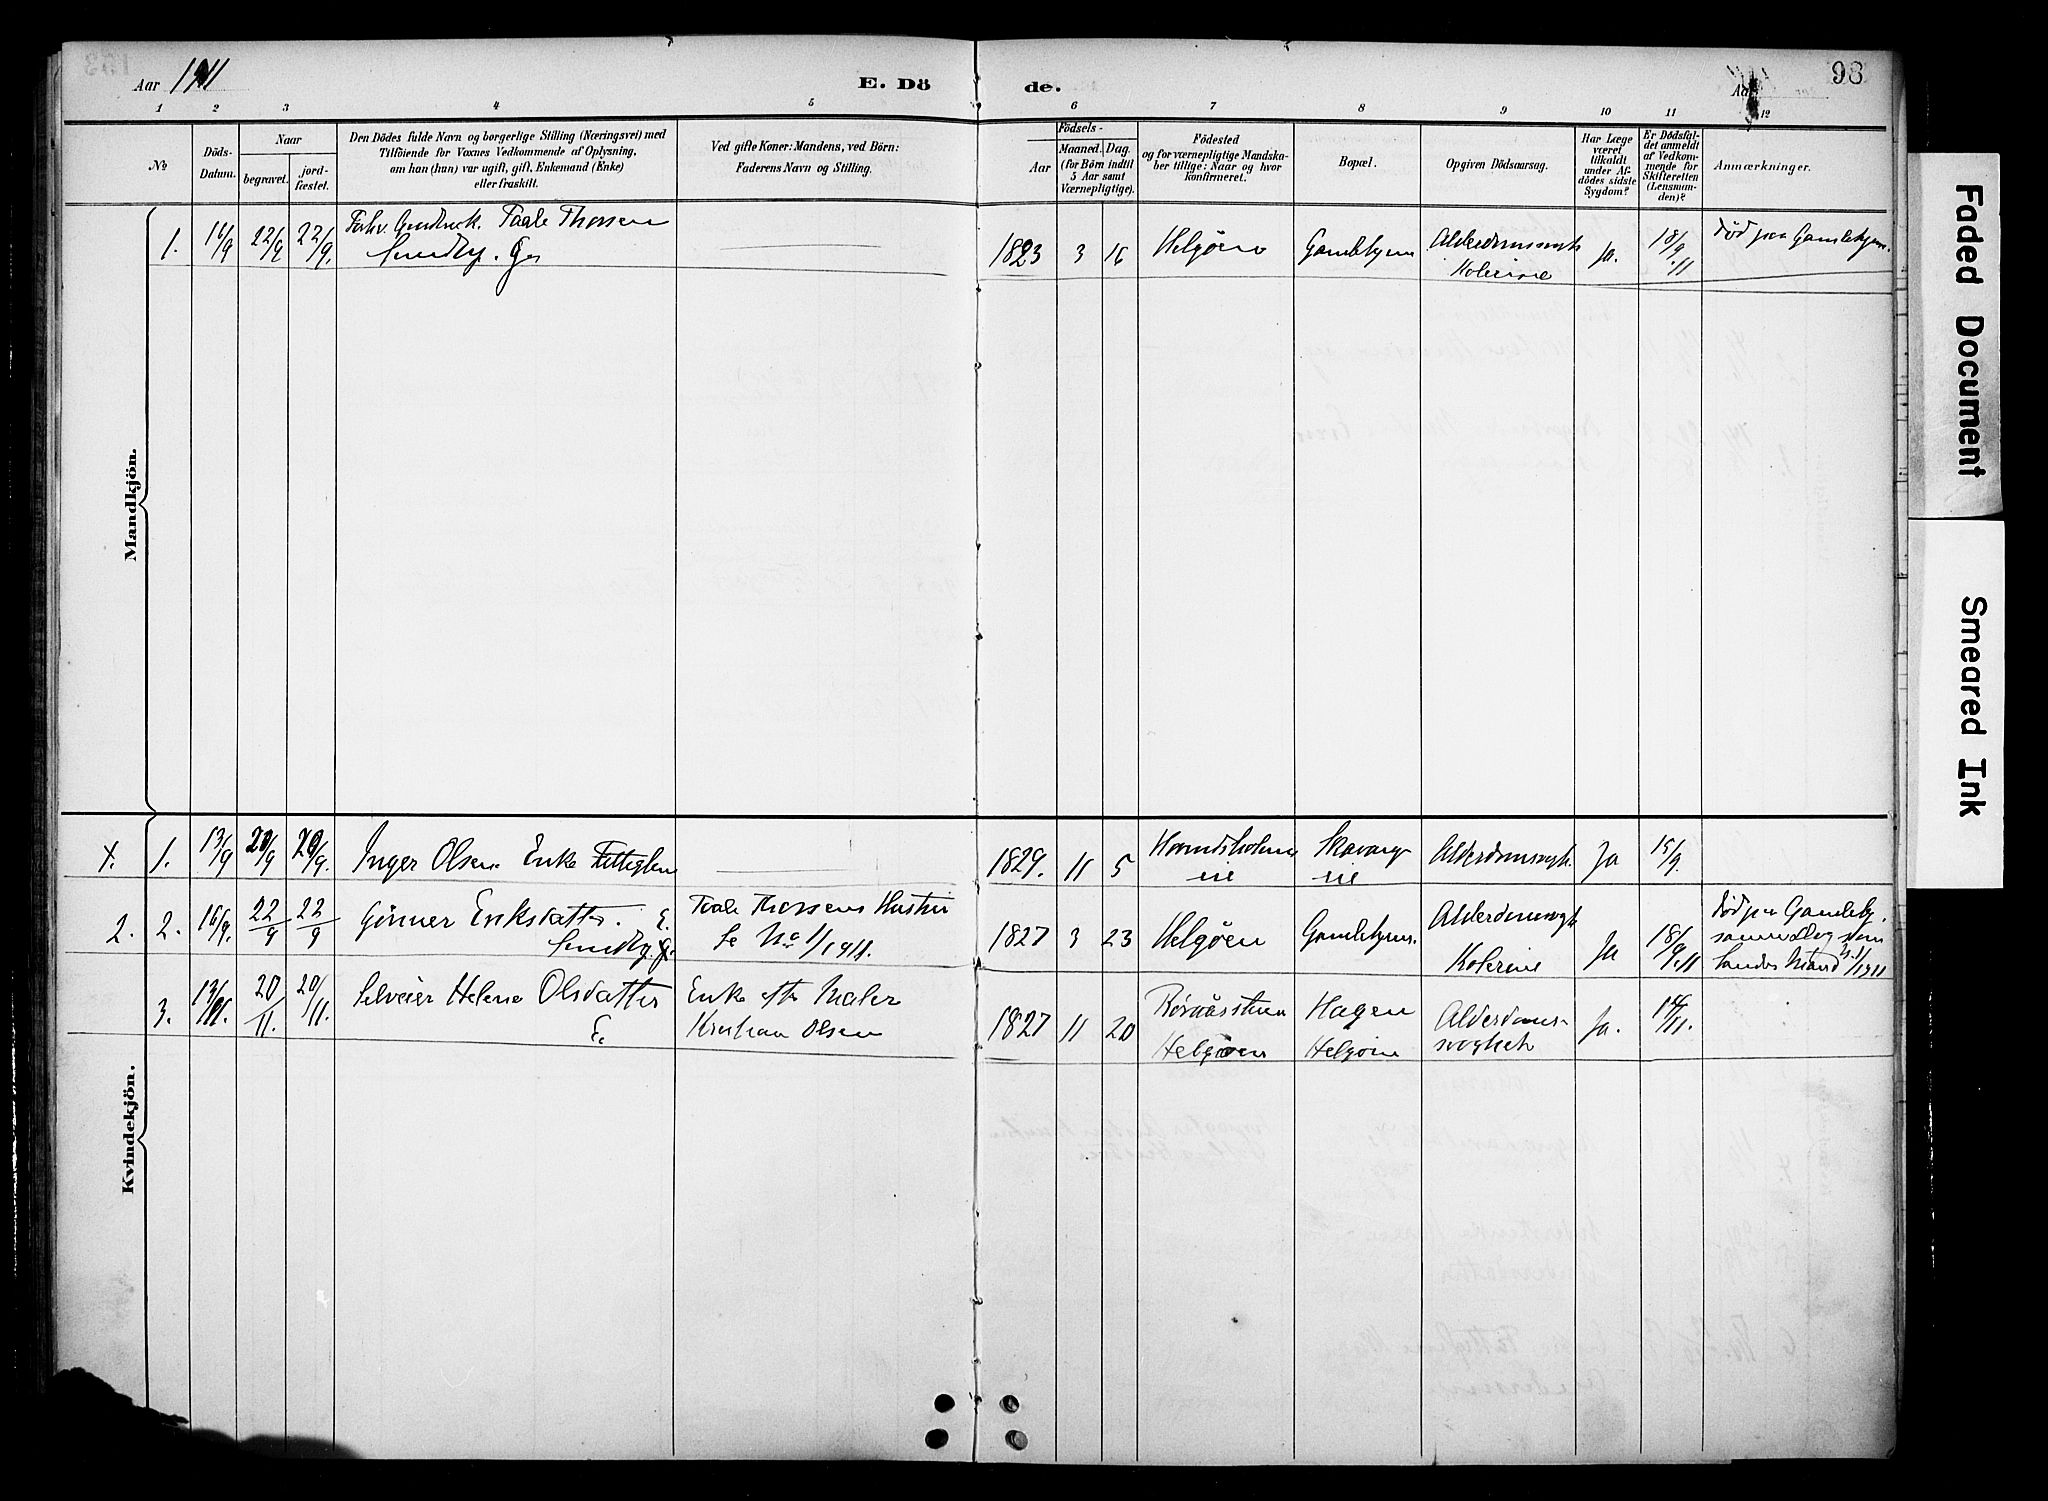 Aar 1911
E. Dö
de.
Aar
98
1 2 3 4 5 6 7 8 9 10 11 12
No
Döds-
Datum.
Naar
begravet.
jord-
fæstet.
Den Dödes fulde Navn og borgerlige Stilling (Næringsvei) med
Tilföiende for Voxnes Vedkommende af Oplysning,
om han (hun) var ugift, gift, Enkemand (Enke)
eller fraskilt.
Ved gifte Koner: Mandens, ved Börn:
Faderens Navn og Stilling.
Födsels-
Aar
Maaned. Dag.
(for Börn indtil
5 Aar samt
Værnepligtige).
Födested
og for værnepligtige Mandska-
ber tillige: Naar og hvor
konfirmeret.
Bopæl.
Opgiven Dödsaarsag.
Har Læge
været
tilkaldt
under Af-
dödes sidste
Sygdom?
Er Dödsfal-
det anmeldt
af Vedkom-
mende for
Skifteretten
(Lensman-
den)?
Anmærkninger.
Mandkjön.
1. 16/9 22/9 22/9. Forhv. Taale Thorsen
Sundby. G. 1823 3 16 Helgøen Alderdomssvagh.
Kolerine Ja. 18/9.11 Død paa
Kvindekjön.
1. 13/9 20/9 20/9. Inger Olsen Enke 1829. 11 5 Alderdomssvagh. Ja 15/9.
2. 2. 16/9. 22/9 22/9 Gønner Eriksdatter.
Sundby. G. Taale Thorsens Hustru
Se No 1/1911. 1827 3 23 Helgøen Alderdomssvagh
Kolerine Ja 18/9.11 Død paa
samme Dag som
hendes Mand No 1/1911
3. 13/11. 20/11. 20/11. Helene Olsdatter
E. Enke efter Maler
Kristian Olsen 1827 11 20
Helgøen Hagen
Helgøen Alderdoms-
svaghet Ja. 14/11.
Faded Document
Smeared Ink